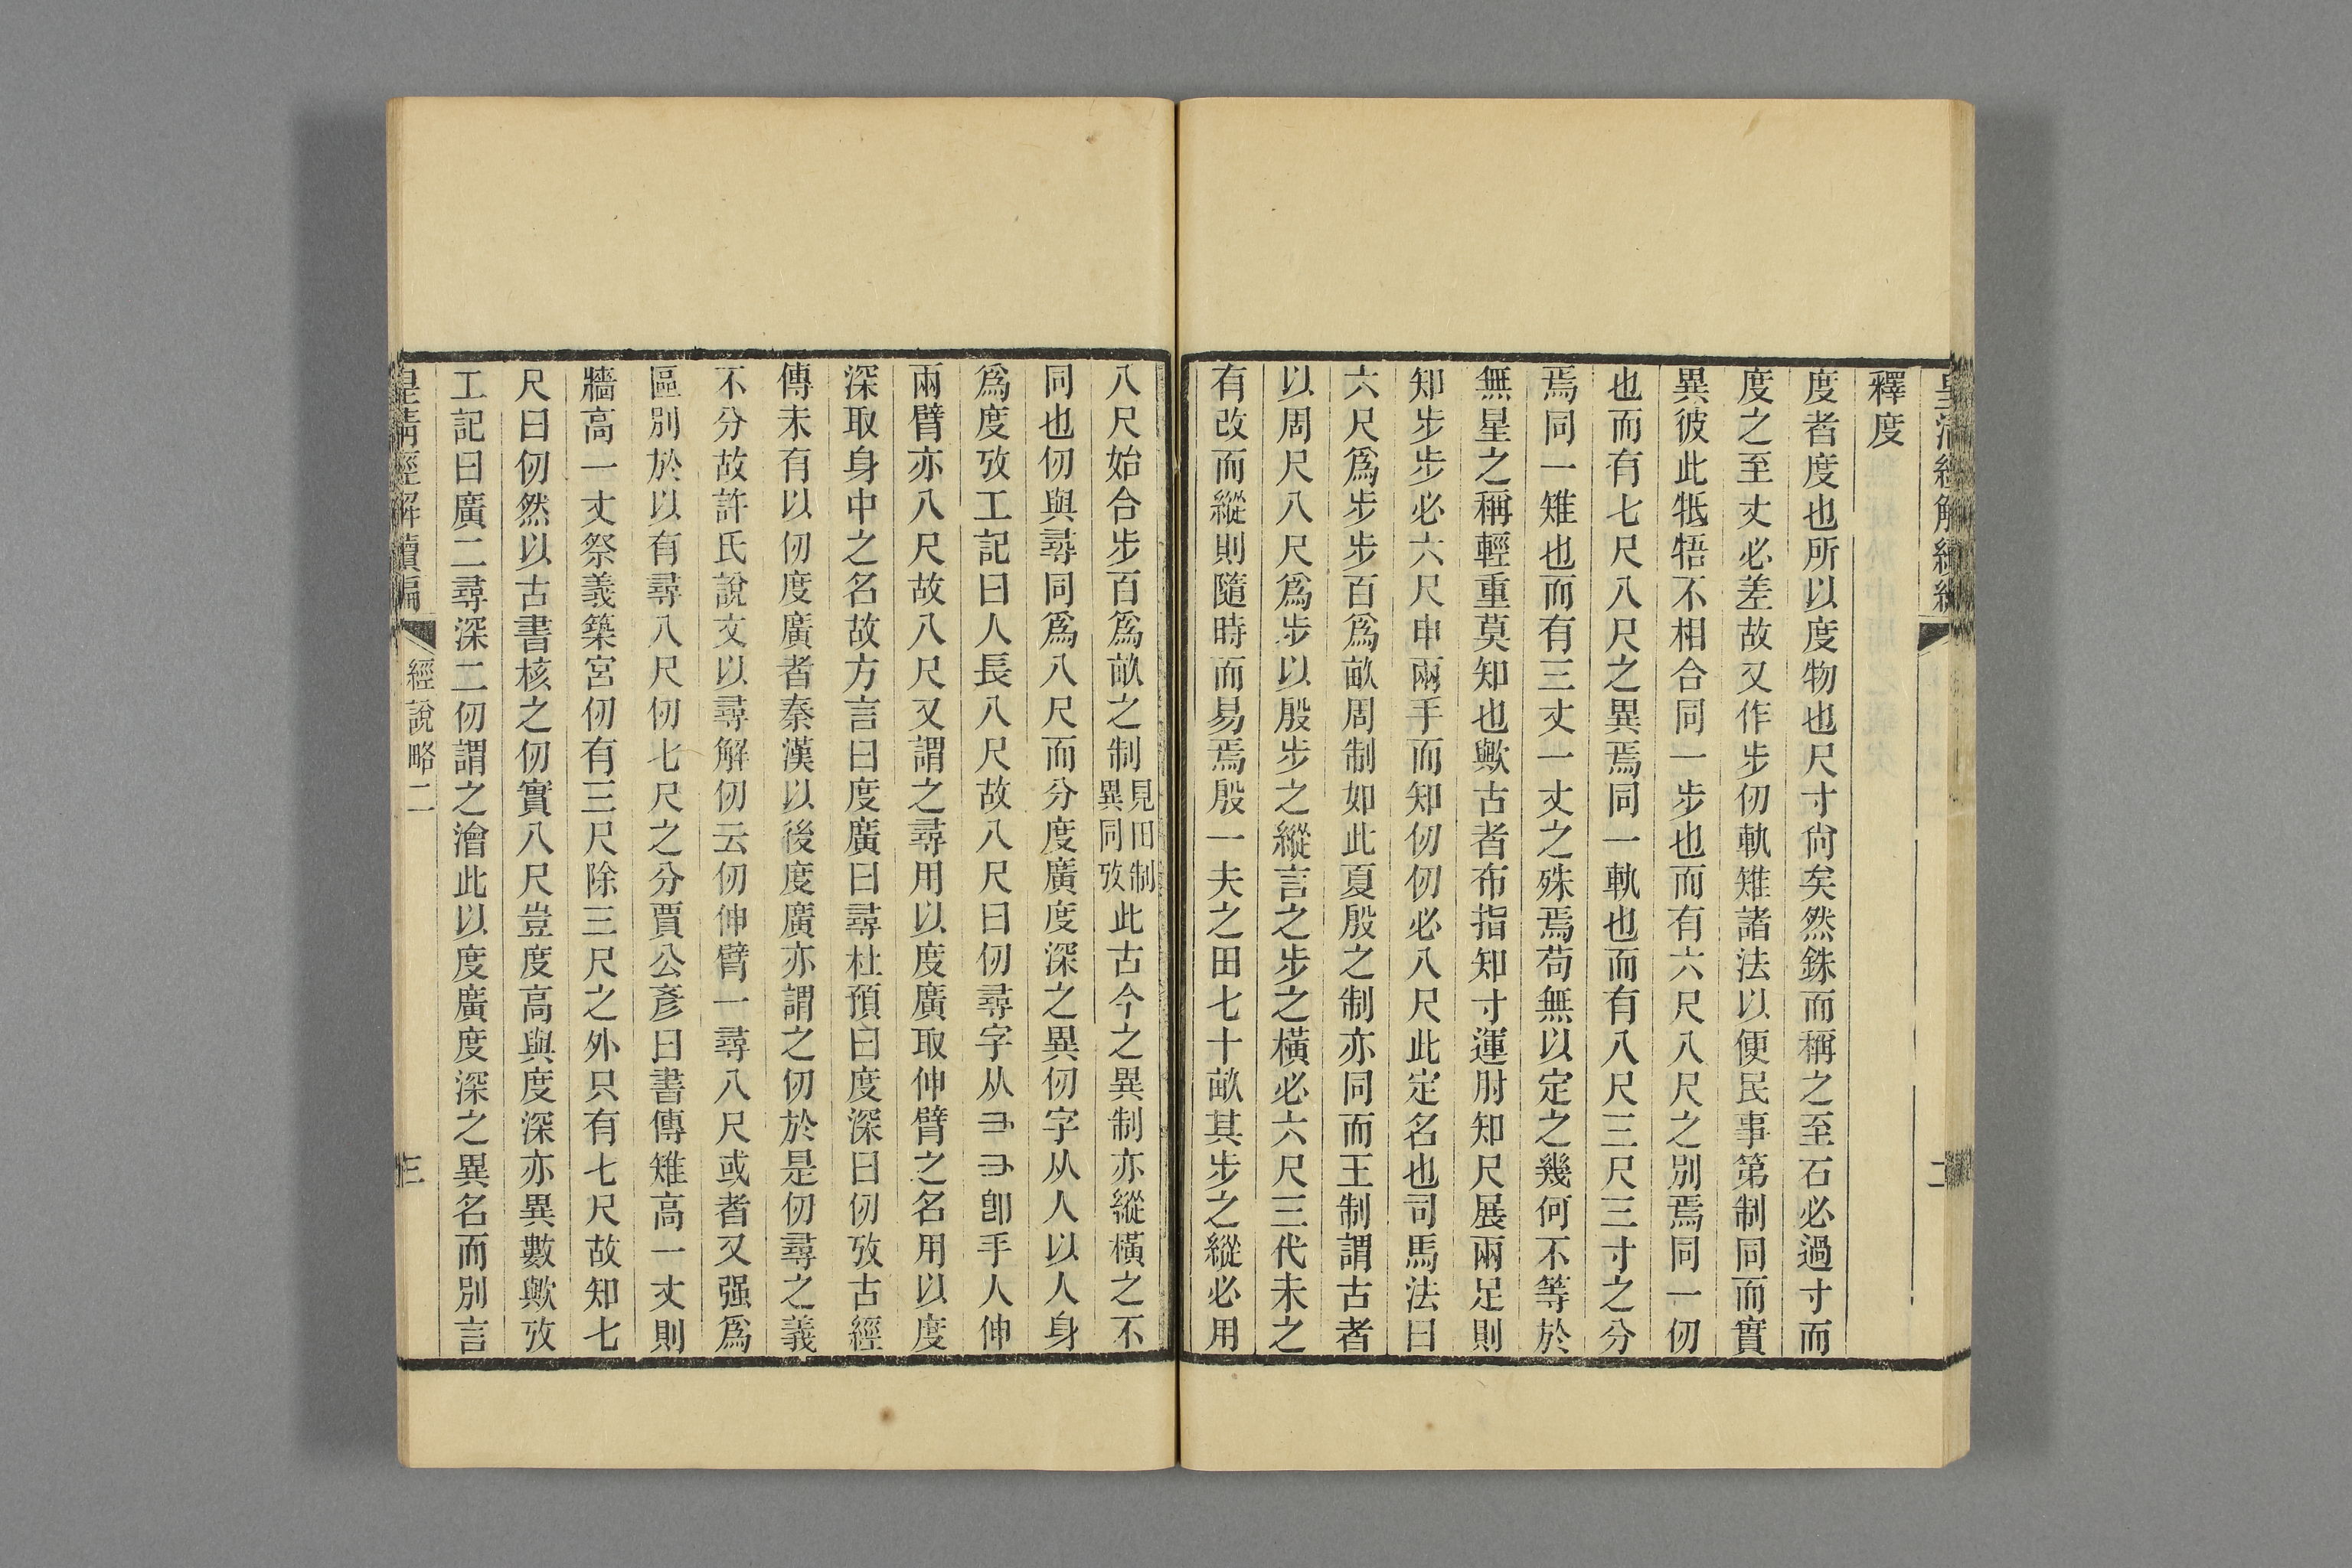 釋度
度者度也所以度物也尺寸尙矣然銖而稱之至石必過寸而
度之至丈必差故又作步仞軌雉諸法以便民事第制同而實
異彼此牴牾不相合同一步也而有六尺八尺之別焉同一仞
也而有七尺八尺之異焉同一軌也而有八尺三尺三寸之分
焉同一雉也而有三丈一丈之殊焉苟無以定之幾何不等於
無星之稱輕重莫知也歟古者布指知寸運肘知尺展兩足則
知步步必六尺申兩手而知仞仞必八尺此定名也司馬法曰
六尺爲步步百爲畝周制如此夏殷之制亦同而王制謂古者
以周尺八尺爲步以殷步之縱言之步之橫必六尺三代未之
有改而縱則隨時而易焉殷一夫之田七十畝其步之縱必用
八尺始合步百爲畝之制見田制異同攷此古今之異制亦縱橫之不
同也仞與尋同爲八尺而分度廣度深之異仞字从人以人身
爲度攷工記曰人長八尺故八尺曰仞尋字从⺕⺕卽手人伸
兩臂亦八尺故八尺又謂之尋用以度廣取伸臂之名用以度
深取身中之名故方言曰度廣曰尋杜預曰度深曰仞攷古經
傳未有以仞度廣者秦漢以後度廣亦謂之仞於是仞尋之義
不分故許氏說文以尋解仞云仞伸臂一尋八尺或者又强爲
區別於以有尋八尺仞七尺之分賈公彥曰書傳雉高一丈則
牆高一丈祭義築宮仞有三尺除三尺之外只有七尺故知七
尺曰仞然以古書核之仞實八尺豈度高與度深亦異數歟攷
工記曰廣二尋深二仞謂之澮此以度廣度深之異名而別言
皇清經解續編 經說略二 三